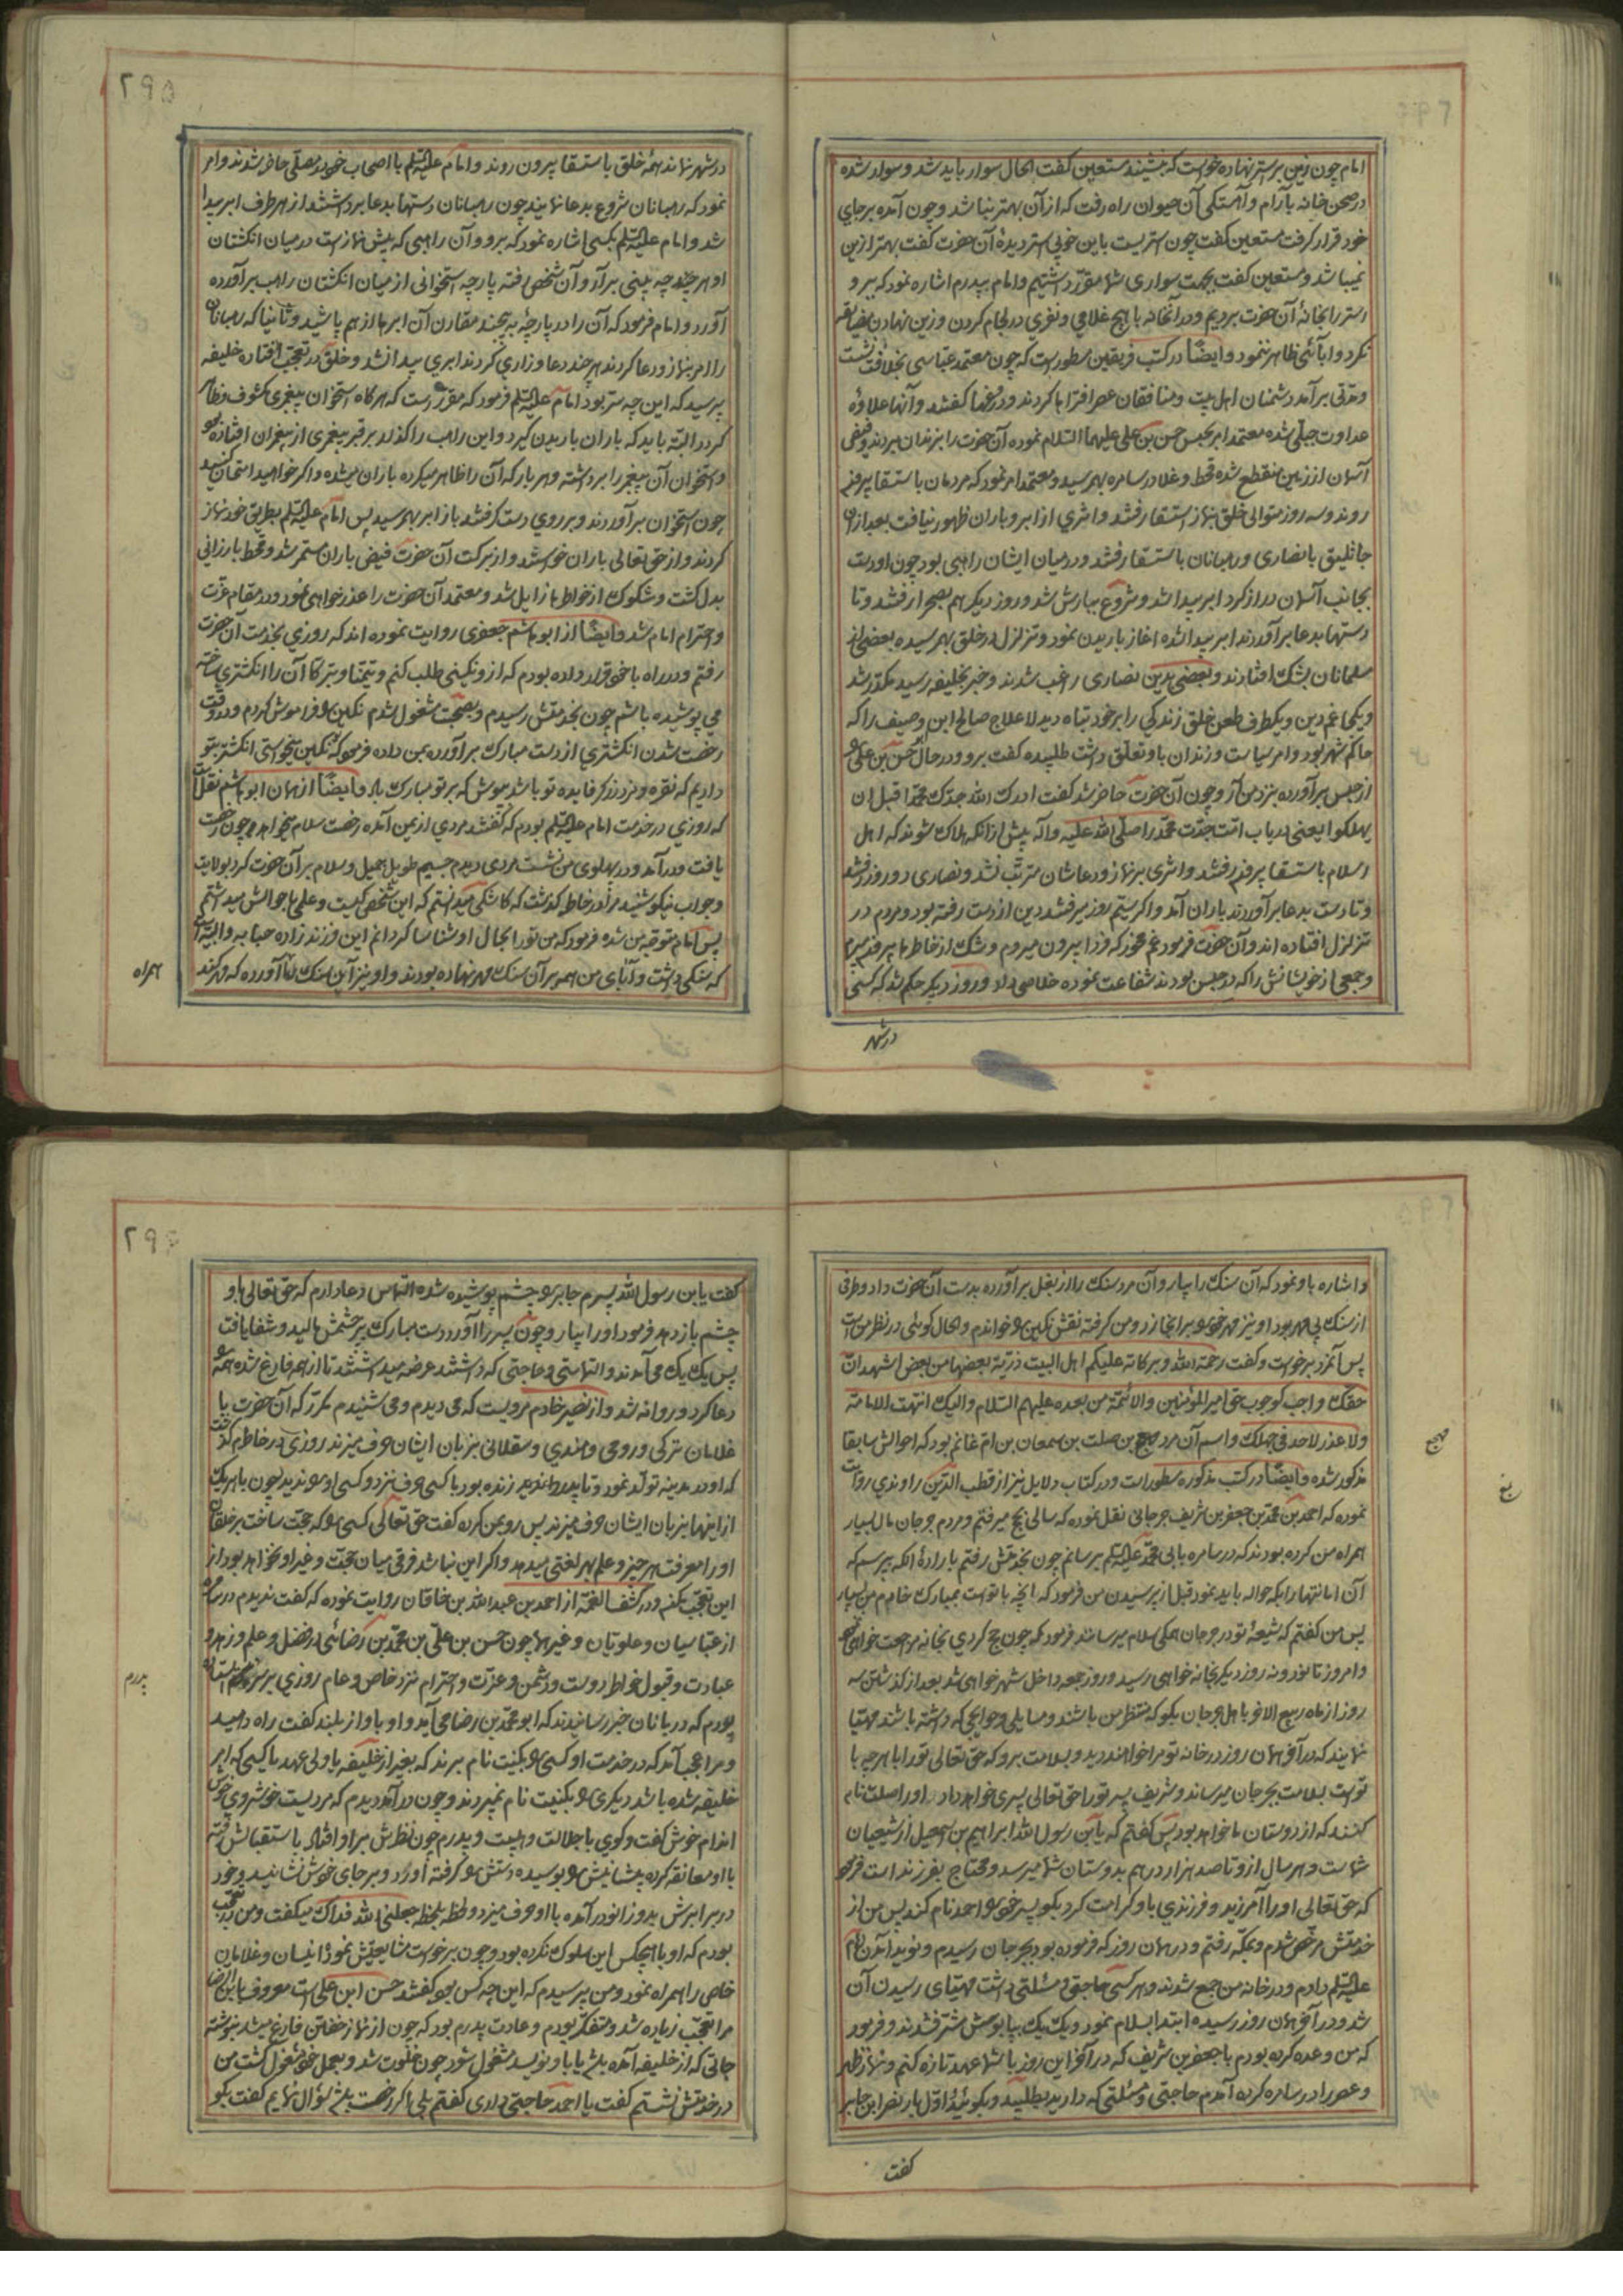 امام چون زین بر استر نهاده خواست که بنشیند مستعین گفت الحال سوار باید شد و سوار شده
در صحن خانه بآرام و آهستگی آن حیوان راه رفت که از آن بهتر نباشد و چون آمده بر جای
خود قرار گرفت مستعین گفت چون استریست باین خوبی استر دیدهٔ آن حضرت گفت بهتر ازین
نمیباشد و مستعین گفت بجهت سواری شما مقرّر داشتیم و امام بپدرم اشاره نمود که ببر و
استر را بخانهٔ آن حضرت بردیم و در آنخانه با هیچ غلامی و نفری در لجام کردن و زین نهادن مضایقه
نکرد و ابائی ظاهر ننمود و ایضًا در کتب فریقین مسطور است که چون معتمد عبّاسی بخلافت نشست
و مدّتی برآمد دشمنان اهل بیت و منافقان عصر افتراها کردند و دروغها گفتند و آنها علاوهٔ
عداوت جبلّی شده معتمد امر بحبس حسن بن علی علیهما السّلام نموده آن حضرت را بزندان بردند و فیض
آسمان از زمین منقطع شده قحط و غلا در سامره بهم رسید و معتمد امر نمود که مردمان باستسقا بیرون
روند و سه روز متوالی خلق بنماز استسقا رفتند و اثری از ابر و باران ظهور نیافت بعد از آن
جاثلیق با نصاری و رهبانان باستسقا رفتند و در میان ایشان راهبی بود چون او دست
بجانب آسمان دراز کرد ابر پیدا شد و شروع ببارش شد و روز دیگر هم بصحرا رفتند و تا
دستها بدعا برآوردند ابر پیدا شده آغاز باریدن نمود و تزلزل در خلق بهم رسیده بعضی از
مسلمانان بشک افتادند و بعضی بدین نصاری راغب شدند و خبر بخلیفه رسید مکدّر شد
و یکی غم دین و یکطرف طعن خلق زندگی را بر خود تباه دید لا علاج صالح ابن وصیف را که
حاکم شهر بود و امر سیاست و زندان باو تعلّق داشت طلبیده گفت برو و در حال حسن بن علی را
از حبس برآورده بنزد من آر و چون آن حضرت حاضر شد گفت ادرک امّة جدّک محمّد قبل ان
یهلکوا یعنی دریاب امّت جدّت محمّد را صلّی الله علیه و آله پیش از آنکه هلاک شوند که اهل
اسلام باستسقا بیرون رفتند و اثری بر نماز و دعاشان مترتّب نشد و نصاری دو روز رفتند
و تا دست بدعا برآوردند باران آمد و اگر سیّم روز میرفتند دین از دست رفته بود و مردم در
تزلزل افتاده اند و آن حضرت فرمود غم مخور که فردا بیرون میروم و شک از خاطرها بیرون میبرم
و جمعی از خویشانش را که در حبس بودند شفاعت نموده خلاصی داد و روز دیگر حکم شد که کسی
در شهر
۲۹۵
در شهر نماند همهٔ خلق باستسقا بیرون روند و امام علیه السّلم با اصحاب خود بمصلّی حاضر شدند و امر
نمود که رهبانان شروع بدعا نمایند چون رهبانان دستها بدعا برداشتند از هر طرف ابر پیدا
شد و امام علیه السّلم بکسی اشاره نمود که برو و آن راهبی که پیش نماز است در میان انگشتان
او هر چند چه بینی برآر و آن شخص رفته پارچه استخوانی از میان انگشتان راهب برآورده
آورد و امام فرمود که آن را در پارچهٔ بپیچند مقارن آن ابرها از هم پاشید و ثانیا که رهبانان
را امر بنماز و دعا کردند هر چند دعا و زاری کردند ابری پیدا نشد و خلق در تعجّب افتاده خلیفه
پرسید که این چه سرّ بود امام علیه السّلم فرمود که مقرّر است که هرگاه استخوان پیغمبری مکشوف و ظاهر
گردد البتّه باید که باران باریدن گیرد و این راهب را گذار بر قبر پیغمبری از پیغمبران افتاده بود
و استخوان آن پیغمبر را برداشته و هر بار که آن را ظاهر میکرده باران میشده و اگر خواهید امتحان کنید
چون استخوان برآوردند و بر روی دست گرفتند باز ابر بهم رسید پس امام علیه السّلم بطریق خود نماز
کردند و از حق تعالی باران خواستند و از برکت آن حضرت فیض باران مستمر شد و قحط بارزانی
بدل گشت و شکوک از خاطرها زایل شد و معتمد آن حضرت را عذر خواهی نمود و در مقام عزّت
و احترام امام شد و ایضًا از ابو هاشم جعفری روایت نموده اند که روزی بخدمت آن حضرت
رفتم و در راه با خود قرار داده بودم که ازو نگینی طلب کنم و تیمّنا و تبرّکا آن را انگشتری ساخته
می پوشیده باشم چون بخدمتش رسیدم و بصحبت مشغول شدم نگین را فراموش کردم و در وقت
رخصت شدن انگشتری از دست مبارک برآورده بمن داده فرمود که نگین میخواستی انگشتر بتو
دادیم که نقره و مزد زرگر فایدهٔ تو باشد بپوش که بر تو مبارک باد و ایضًا از همان ابو هاشم نقلست
که روزی در خدمت امام علیه السّلم بودم که گفتند مردی از یمن آمده رخصت سلام میخواهد و چون رخصت
یافت و درآمد و در پهلوی من نشست مردی دیدم جسیم طویل جمیل و سلام بر آن حضرت کرد بولایت
و جواب نیکو شنید مرا در خاطر گذشت که کاشکی میدانستم که این شخص کیست و علمی باحوالش میداشتم
پس امام متوجّه من شده فرمود که من تو را بحال او شناسا گردانم این فرزند زاده حبابه والبیّه است
که سنگی داشت و آبای من همه بر آن سنگ مهر نهاده بودند و او نیز این سنگ را آورده که مهر کند
همراه
و اشاره باو نمود که آن سنگ را بیار و آن مرد سنگ را از بغل برآورده بدست آن حضرت داد و طرفی
از سنگ بی مهر بود او نیز مهر خود را بر آنجا زد و من گرفته نقش نگین را خواندم و الحال گوئی در نظر من است
پس آنمرد برخواست و گفت رحمة الله و برکاته علیکم اهل البیت ذرّیّة بعضها من بعض اشهد انّ
حقّک واجب کوجوب حقّ امیر المؤمنین و الائمّة من بعده علیهم السّلام و الیک انتهت الامامة
و لا عذر لاحد فی جهلک و اسم آن مرد مهجع بن صلت بن سمعان بن امّ غانم بود که احوالش سابقا
مذکور شده و ایضًا در کتب مذکوره مسطور است و در کتاب دلایل نیز از قطب الدّین راوندی روایت
نموده که احمد بن محمّد بن جعفر بن شریف جرجانی نقل نموده که سالی بحج میرفتم و مردم جرجان مال بسیار
همراه من کرده بودند که در سامره بابی محمّد علیه السّلم برسانم چون بخدمتش رفتم باراده آنکه بپرسم که
آن امانتها را بکه حواله باید نمود قبل از پرسیدن من فرمود که آنچه با تو است بمبارک خادم من بسپار
پس من گفتم که شیعهٔ تو در جرجان همگی سلام میرسانند فرمود که چون حج کردی بخانه مراجعت خواهی نمود
و امروز تا نود و نه روز دیگر بخانه خواهی رسید و روز جمعه داخل شهر خواهی شد بعد از گذشتن سه
روز از ماه ربیع الاخر باهل جرجان بگو که منتظر من باشند و مسایلی و حوایجی که داشته باشند مهیّا
نمایند که در آخر همان روز در خانه تو مرا خواهند دید و بسلامت برو که حق تعالی تو را با هر چه با
تو است بسلامت بجرجان میرساند و شریف پسر تو را حق تعالی پسری خواهد داد او را صلت نام
کنند که از دوستان ما خواهد بود پس گفتم که یا بن رسول الله ابراهیم بن اسمعیل از شیعیان
شماست و هر سال ازو تا صد هزار درهم بدوستان شما میرسد و محتاج بفرزند است فرمود
که حق تعالی او را آمرزید و فرزندی باو کرامت کرد بگو پسر خود را احمد نام کند پس من از
خدمتش مرخّص شدم و بمکّه رفتم و در همان روز که فرموده بود بجرجان رسیدم و نوید آمدن امام
علیه السّلم دادم و در خانه من جمع شدند و هر کسی حاجتی و مسئلتی داشت مهیّای رسیدن آن
شد و در آخر همان روز رسیده ابتدا بسلام نمود و یک یک بپابوسش مشرّف شدند و فرمود
که من وعده کرده بودم با جعفر بن شریف که در آخر این روز با شما عهد تازه کنم و نماز ظهر
و عصر را در سامره کرده آمدم حاجتی و مسئلتی که دارید بطلبید و بگوئید اوّل بار نضر ابن جابر
گفت
مهجع
۲۹۶
گفت یا بن رسول الله پسرم جابر را چشم پوشیده شده التماس دعا دارم که حق تعالی باو
چشم باز دهد فرمود او را بیار و چون پسر را آورد دست مبارک بر چشمش مالید و شفا یافت
پس یک یک می آمدند و التماسی و حاجتی که داشتند عرضه میداشتند تا از همه فارغ شده همه را
دعا کرد و روانه شد و از نضیر خادم مرویست که می دیدم و می شنیدم مکرّر که آن حضرت با
غلامان ترکی و رومی و هندی و سقلابی بزبان ایشان حرف میزند روزی در خاطرم گذشت
که او در مدینه تولّد نمود و تا پدر بزرگوارش زنده بود با کسی حرف نزد و کسی او را ندید چون با هر یک
از اینها بزبان ایشان حرف میزند پس رو بمن کرده گفت حق تعالی کسی را که حجّت ساخت بر خلقان
او را معرفت هر چیز و علم هر لغتی میدهد و اگر این نباشد فرقی میان حجّت و غیر او نخواهد بود از
این تعجّب مکنید و در کشف الغمّه از احمد بن عبد الله بن خاقان روایت نموده که گفت ندیدم در سامره
از عبّاسیان و علویان و غیرها چون حسن بن علی بن محمّد بن رضائی در فضل و علم و زهد و
عبادت و قبول خواطر دوست و دشمن و عزّت و احترام نزد خاص و عام روزی بر سر پدرم ایستاده
بودم که دربانان خبر رسانیدند که ابو محمّد بن رضا می آید و او باواز بلند گفت راه دهید
و مرا عجب آمد که در خدمت او کسی را بکنیت نام برند که بغیر از خلیفه یا ولی عهد یا کسی که امر
خلیفه شده باشد دیگری را بکنیت نام نمیبردند و چون درآمد دیدم که مردیست خوشروی خوش
اندام خوش گفت و گوی با جلالت و هیبت و پدرم چون نظرش بر او افتاد باستقبالش رفته
با او معانقه کرده پیشانیش را بوسیده دستش را گرفته آورد و بر جای خودش نشانید و خود
در برابرش بدو زانو درآمده با او حرف میزد و لحظه بلحظه جعلنی الله فداک میگفت و من در تعجّب
بودم که او با هیچکس این سلوک نکرده بود و چون برخواست مشایعتش نمود و انیسان و غلامان
خاص را همراه نمود و من پرسیدم که این چه کس بود گفتند حسن ابن علی است معروف بابن الرضا
مرا تعجّب زیاده شد و متفکّر بودم و عادت پدرم بود که چون از نماز خفتن فارغ میشد بنوشته
جاتی که از خلیفه آمده باشد یا باو نویسد مشغول شود چون بخلوت شد و بعمل خود مشغول گشت من
در خدمتش نشستم گفت یا احمد حاجتی داری گفتم بلی اگر رخصت باشد سؤال نمایم گفت بگو
پدرم